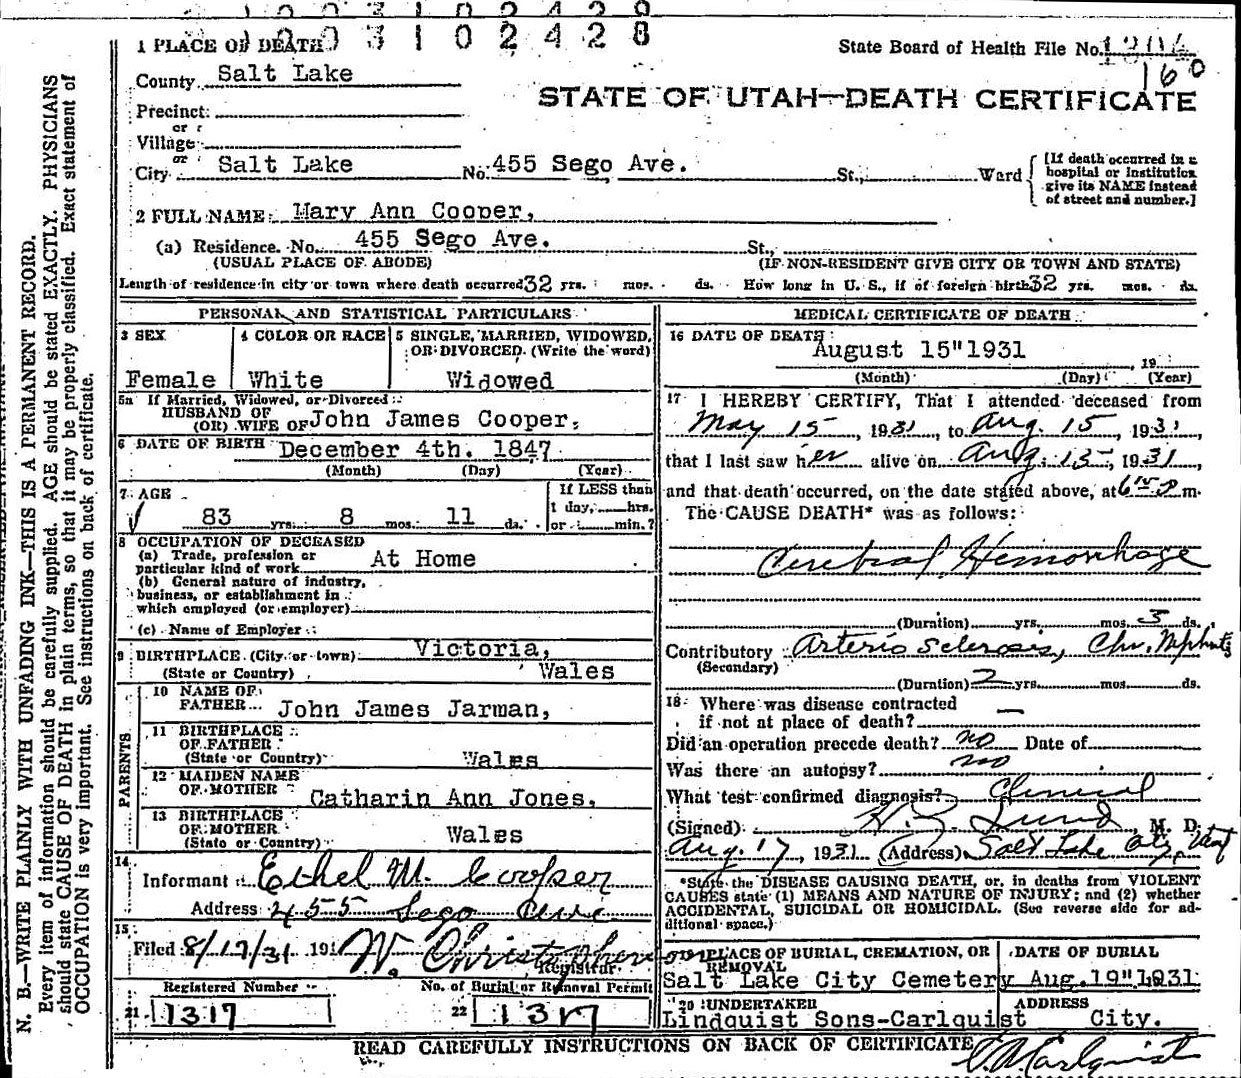 1003102428
1 PLACE OF DEATH
State Board of Health File No.
160
County Salt Lake
STATE OF UTAH—DEATH CERTIFICATE
Precinct
or
Village
or
City Salt Lake No. 455 Sego Ave. St., Ward
[If death occurred in a hospital or institution give its NAME instead of street and number.]
2 FULL NAME Mary Ann Cooper,
(a) Residence. No. 455 Sego Ave. St.,
(USUAL PLACE OF ABODE) (IF NON-RESIDENT GIVE CITY OR TOWN AND STATE)
Length of residence in city or town where death occurred 32 yrs. mos. ds. How long in U. S., if of foreign birth? 32 yrs. mos. ds.
PERSONAL AND STATISTICAL PARTICULARS
3 SEX 4 COLOR OR RACE 5 SINGLE, MARRIED, WIDOWED, OR DIVORCED. (Write the word)
Female White Widowed
5a If Married, Widowed, or Divorced
HUSBAND OF
(OR) WIFE OF John James Cooper.
6 DATE OF BIRTH December 4th. 1847
(Month) (Day) (Year)
7 AGE If LESS than
1 day, hrs.
83 yrs. 8 mos. 11 ds. or min.?
8 OCCUPATION OF DECEASED
(a) Trade, profession or
particular kind of work At Home
(b) General nature of industry,
business, or establishment in
which employed (or employer)
(c) Name of Employer
9 BIRTHPLACE (City or town) Victoria,
(State or Country) Wales
PARENTS
10 NAME OF
FATHER John James Jarman,
11 BIRTHPLACE
OF FATHER
(State or Country) Wales
12 MAIDEN NAME
OF MOTHER Catharin Ann Jones.
13 BIRTHPLACE
OF MOTHER
(State or Country) Wales
14
Informant Ethel M. Cooper
Address 455 Sego Ave
15
Filed 8/17/31 191 W. Christophers
Registrar.
Registered Number No. of Burial or Removal Permit
21 1317 22 1317
MEDICAL CERTIFICATE OF DEATH
16 DATE OF DEATH
August 15" 1931 19
(Month) (Day) (Year)
17 I HEREBY CERTIFY, That I attended deceased from
May 15, 1931, to Aug. 15, 1931,
that I last saw her alive on Aug. 15, 1931,
and that death occurred, on the date stated above, at m.
The CAUSE DEATH* was as follows:
Cerebral Hemorrhage
(Duration) yrs. mos. 3 ds.
Contributory Arterio Sclerosis, Chr. Nephritis
(Secondary)
(Duration) 2 yrs. mos. ds.
18 Where was disease contracted
if not at place of death? —
Did an operation precede death? no Date of
Was there an autopsy? no
What test confirmed diagnosis? Clinical
(Signed) Lund M. D.
Aug. 17, 1931 (Address) Salt Lake City, Utah
*State the DISEASE CAUSING DEATH, or, in deaths from VIOLENT
CAUSES state (1) MEANS AND NATURE OF INJURY; and (2) whether
ACCIDENTAL, SUICIDAL OR HOMICIDAL. (See reverse side for ad-
ditional space.)
PLACE OF BURIAL, CREMATION, OR
REMOVAL DATE OF BURIAL
Salt Lake City Cemetery Aug. 19" 1931
20 UNDERTAKER ADDRESS
Lindquist Sons-Carlquist City.
READ CAREFULLY INSTRUCTIONS ON BACK OF CERTIFICATE
Carlquist
N. B.—WRITE PLAINLY WITH UNFADING INK—THIS IS A PERMANENT RECORD.
Every item of information should be carefully supplied. AGE should be stated EXACTLY. PHYSICIANS
should state CAUSE OF DEATH in plain terms, so that it may be properly classified. Exact statement of
OCCUPATION is very important. See instructions on back of certificate.